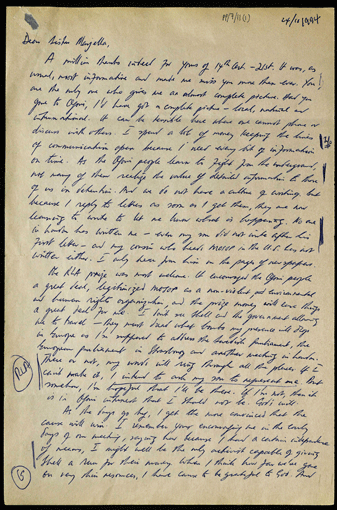 24/10/94
Dear Sister Majella,
A million thanks indeed for yours of 14th Oct. - 21st. It was, as
usual, most informative and made me miss you more than ever. You
are the only one who gives me an almost complete picture. Had you
gone to Ogoni, I'd have got a complete picture - local, national and
international. It can be terrible here when one cannot phone or
discuss with others. I spend a lot of money keeping the lines
of communication open because I need every bit of information
on time. As the Ogoni people learn to fight from the underground,
not many of them realize the value of detailed information to those
of us in detention. And we do not have a culture of writing. But
because I reply to letters as soon as I get them, they are now
learning to write to let me know what is happening. No one
in London has written me - even my son did not write after his
first letter - and my cousin who heads MOSOP in the U.S. has not
written either. I only hear from him in the pages of newspapers.
The RLA prize was most welcome. It encouraged the Ogoni people
a great deal, legitimized MOSOP as a non-violent and environmental
and human rights organization, and the prize money will do things
a great deal for me. I don't see Shell and the government allowing
me to travel - they must dread what bombs my presence will drop
in Europe as I'm supposed to address the Swedish parliament, the
European parliament in Strasbourg and another meeting in London.
There or not, my words will ring through all the places. If I
can't make it, I intend to ask my son to represent me. But
somehow, I'm hopeful that I'll be there. If I'm not, then it
is in Ogoni interest that I should not be. God's will.
As the days go by, I get the more convinced that the
cause will win. I remember your encouraging me in the early
days of our meeting, saying how because I had a certain independence
of means, I might well be the only activist capable of giving
Shell a run for their money. When I think how far we've gone
on very thin resources, I have cause to be grateful to God. And
RLA
15